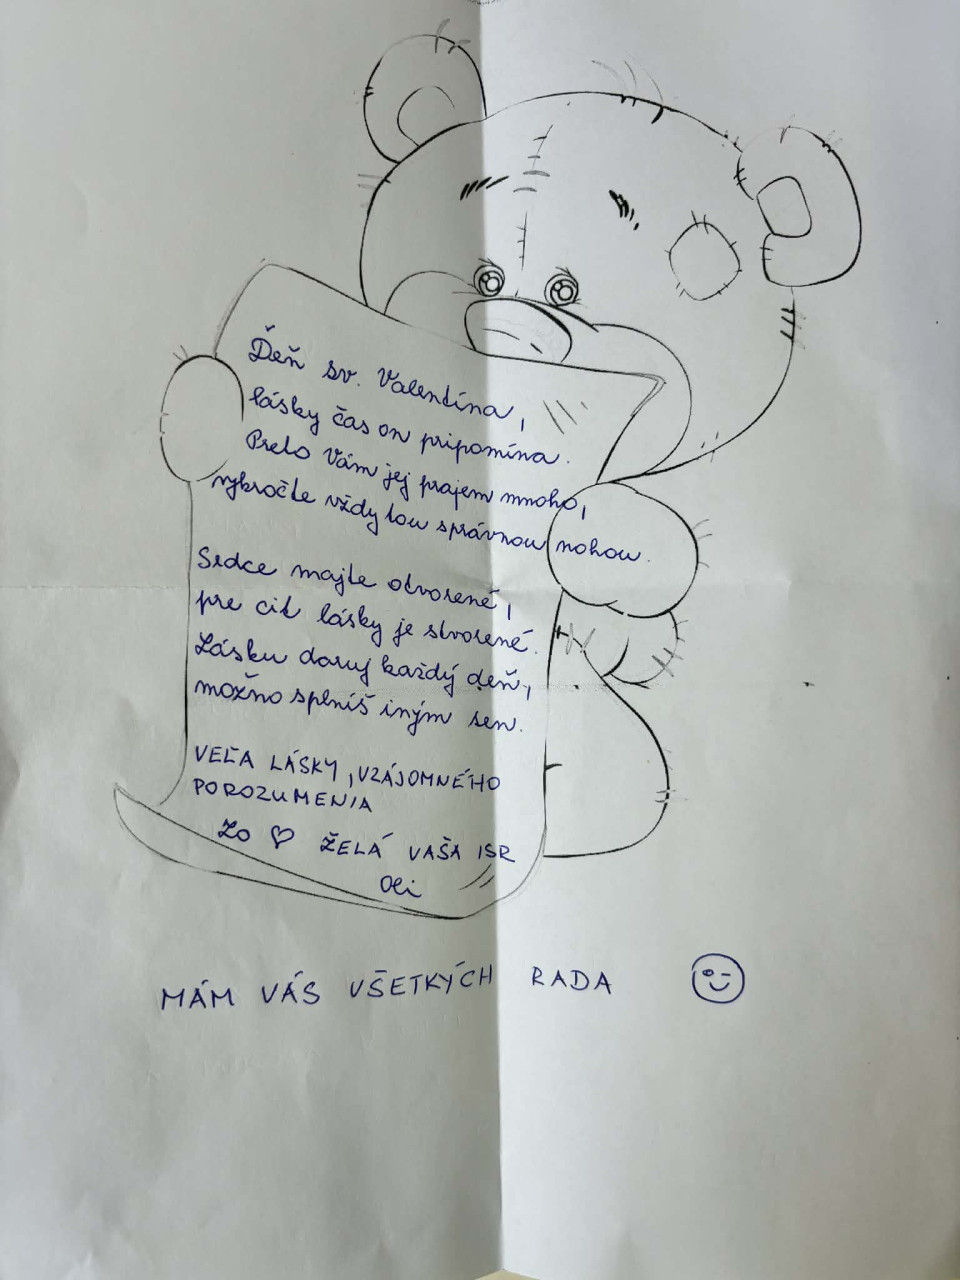 Ďeň sv. Valentína,
lásky čas on pripomína.
Preto Vám jej prajem mnoho,
vykročte vždy tou správnou nohou.
Srdce majte otvorené,
pre cit lásky je stvorené.
Lásku daruj každý deň,
možno splníš iným sen.
VEĽA LÁSKY, VZÁJOMNÉHO
POROZUMENIA
Zo ♡ ŽELÁ VAŠA ISR
Oli
MÁM VÁS VŠETKÝCH RADA 😉